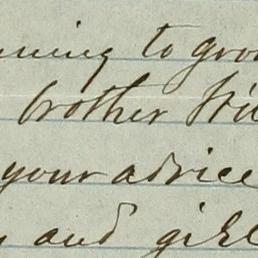 to grow
brother Wi
your advice
and girl